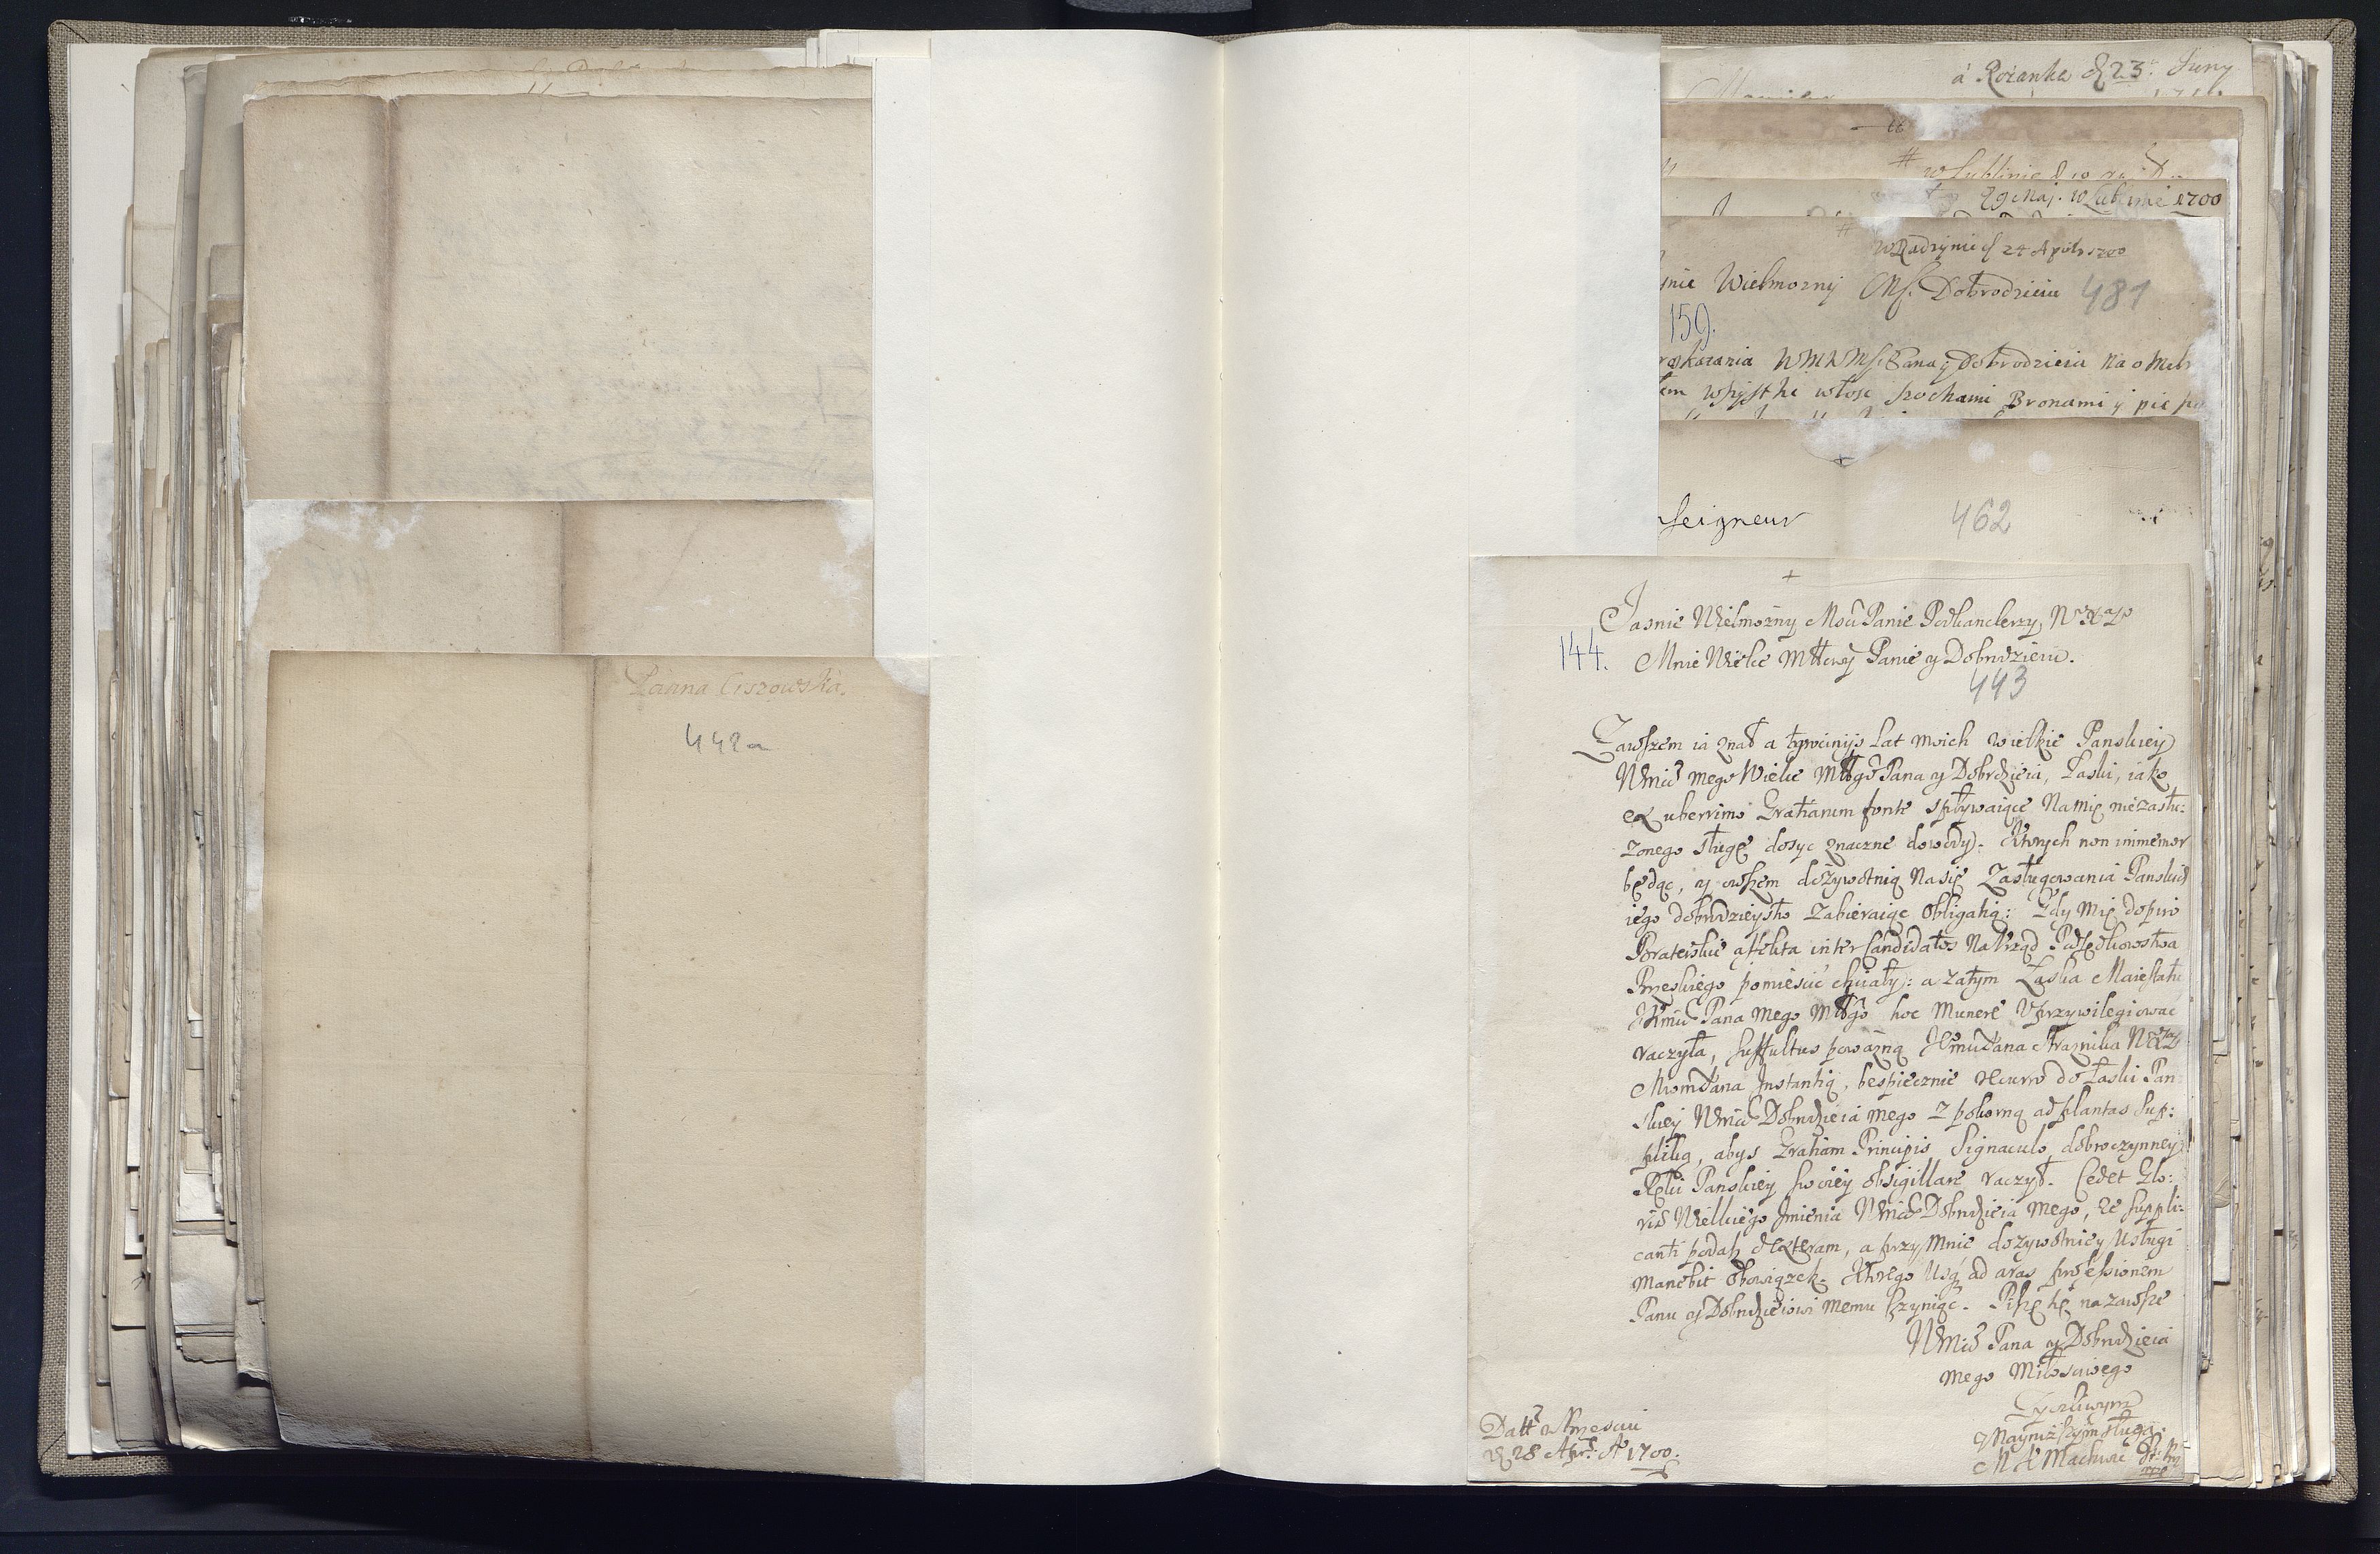 Panna Ciszowska.
442a
à Rożanka d 23. Juny
w Lublinie d 10
29 Maj. w Lublinie 1700
w Radzyniu d 24 Apryla 1700
Wielmozny Mś. Dobrodzieiu 481
159.
roskazania WMWMśc Pana y Dobrodzieia na
wszystki włosc sochami Bronami y pie
seigneur 462
Jasnie Wielmożny Mści Panie Podkanclerzy, W X L
144. Mnie Wielce Młłcwy Panie y Dobrodzieiu.
443
Zawszem ia znał a tyrocinijs Lat moich wielkie Panskiey
WMści mego Wielce Młgo Pana y Dobrodzieia, Łaski, iako
ex uberrimo Gratiarum fonte spływaiące Na mię niezasłu:
żonego sługę dosyc znaczne dowody. Ktorych non immemor
będąc, y owszem dożywotnią Na się Zasługowania Panskie
iego dobrodzieystw Zabieraiąc obligatią: Gdy Mię dopiro
Braterskie affekta inter Candidatos Na Vrząd Podsędkowstwa
Brzeskiego pomiescić chciały: a zatym Łaska Maiestatu
JKMci Pana Mego Młgo hoc Munere Vprzywilegiowac
raczyła, suffultus poważną Jmci Pana Strażnika WXL
Mwm Pana Instantią, bespiecznie recurro do Łaski Pan
skiey WMści Dobrodzieia mego z pokorną ad plantas sup:
pliką, abys Gratiam Principis Signaculo dobroczynney
Ręki Panskiey swoiey obsigillare raczył. Cedet Glo:
riæ Wielkiego Imienia WMści Dobrodzieia mego, że suppli:
canti podasz dexteram, a przy Mnie dozywotniey Usługi
manebit obowiązek. Ktorego Usq ad aras professionem
Panu y Dobrodzieiowi memu czyniąc. Piszę się na zawsze
WMści Pana y Dobrodzieia
mego Miłosciwego
Zyczliwym
y Nayniższym sługą
Datt w Brzesciu
d 28 Apr. A 1700.